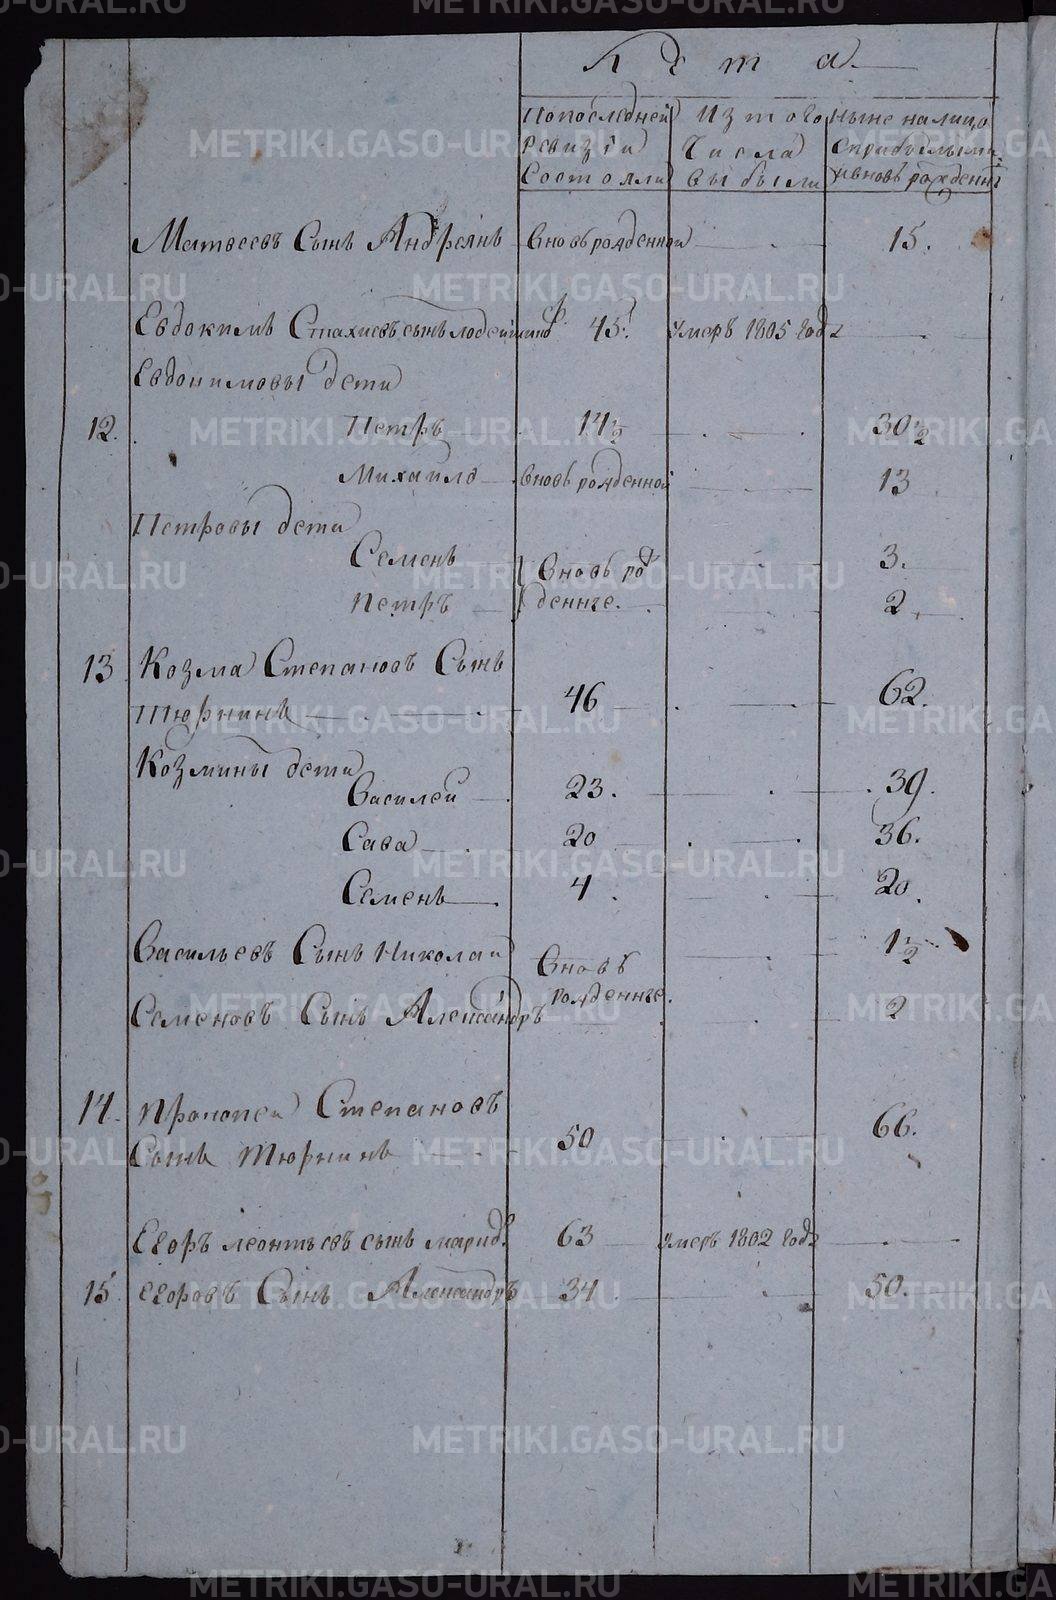 Лѣта
Попоследней Изтого Ныне налицо
ревизии Числа Сприбылыми
Состояли Выбыли ивновь рожденны
Матвеевъ Сынъ Андреянъ Вновьрожденной 15.
Евдокимъ Стахиевъ сынъ 45. умеръ 1805 года
Евдокимовы дети
12. Петръ 14½ 30½
Михайло вновь рожденной 13
Петровы дети
Семенъ Вновь рож 3.
Петръ денные. 2
13 Козма Степановъ Сынъ
Тюркинъ 46 62.
Козмины дети
Василей 23. 39.
Сава 20 36.
Семенъ 4 20.
Васильевъ Сынъ Николай Вновь 1½
рожденные.
Семеновъ Сынъ Александръ 2
14. Прокопей Степановъ
Сынъ Тюркинъ 50 66.
Егоръ Леонтьевъ сынъ 63 умеръ 1802 года
15 Егоровъ Сынъ Александръ 34 50.
METRIKI.GASO-URAL.RU